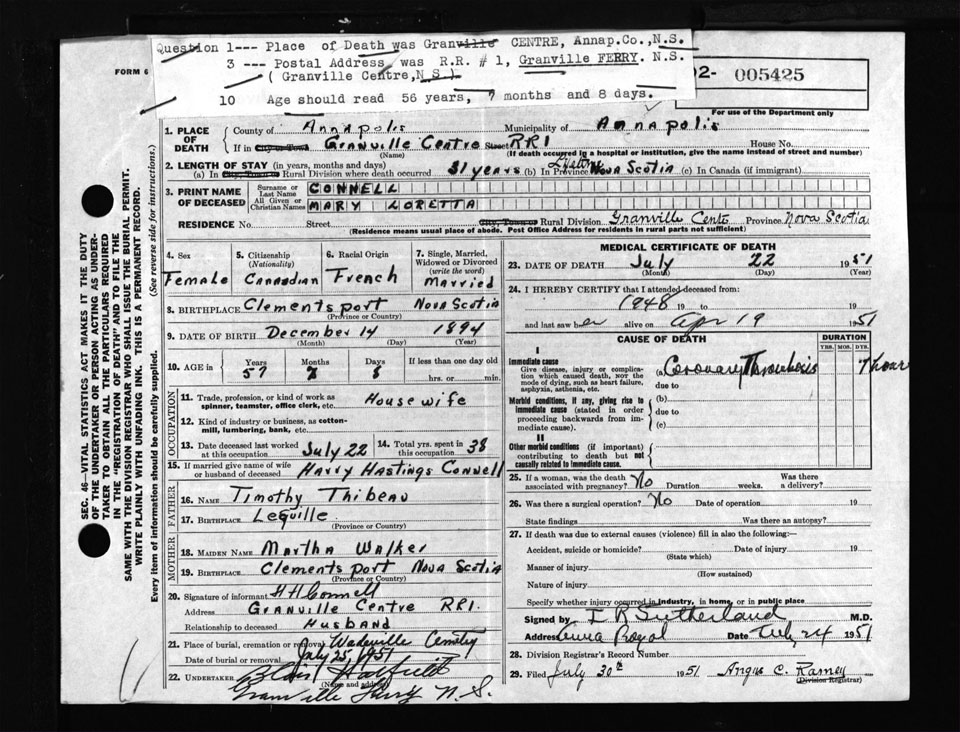 Question 1--- Place of Death was Granville CENTRE, Annap.Co.,N.S.
3 --- Postal Address was R.R. # 1, Granville FERRY. N.S.
( Granville Centre,N.S.)
10 Age should read 56 years, 7 months and 8 days.
FORM 6
02- 005425
For use of the Department only
SEC. 46—VITAL STATISTICS ACT MAKES IT THE DUTY
OF THE UNDERTAKER OR PERSON ACTING AS UNDER-
TAKER TO OBTAIN ALL THE PARTICULARS REQUIRED
IN THE "REGISTRATION OF DEATH" AND TO FILE THE
SAME WITH THE DIVISION REGISTRAR WHO SHALL ISSUE THE BURIAL PERMIT.
WRITE PLAINLY WITH UNFADING INK. THIS IS A PERMANENT RECORD.
Every item of information should be carefully supplied. (See reverse side for instructions.)
1. PLACE OF DEATH
County of Annapolis Municipality of Annapolis
If in City or Town Granville Centre Street RR1 House No.
(Name) (If death occurred in a hospital or institution, give the name instead of street and number)
2. LENGTH OF STAY (in years, months and days)
(a) In City or Town Rural Division where death occurred 31 years (b) In Province Lifetime Nova Scotia (c) In Canada (if immigrant)
3. PRINT NAME OF DECEASED
Surname or Last Name CONNELL
All Given or Christian Names MARY LORETTA
RESIDENCE No. Street City, Town or Rural Division Granville Cent. Province Nova Scotia
(Residence means usual place of abode. Post Office Address for residents in rural parts not sufficient)
4. Sex Female
5. Citizenship (Nationality) Canadian
6. Racial Origin French
7. Single, Married, Widowed or Divorced (write the word) Married
8. BIRTHPLACE Clementsport Nova Scotia
(Province or Country)
9. DATE OF BIRTH December 14 1894
(Month) (Day) (Year)
10. AGE in Years 57 Months 7 Days 8 If less than one day old
hrs. or min.
OCCUPATION
11. Trade, profession, or kind of work as spinner, teamster, office clerk, etc. Housewife
12. Kind of industry or business, as cotton-mill, lumbering, bank, etc.
13. Date deceased last worked at this occupation July 22
14. Total yrs. spent in this occupation 38
15. If married give name of wife or husband of deceased Harry Hastings Connell
FATHER
16. NAME Timothy Thibeau
17. BIRTHPLACE Lequille
(Province or Country)
MOTHER
18. MAIDEN NAME Martha Walker
19. BIRTHPLACE Clementsport Nova Scotia
(Province or Country)
20. Signature of informant HHConnell
Address Granville Centre RR1.
Relationship to deceased Husband
21. Place of burial, cremation or removal Wadeville Cemetry
Date of burial or removal July 25, 1951
22. UNDERTAKER
(Name and address)
Granville Ferry N.S.
MEDICAL CERTIFICATE OF DEATH
23. DATE OF DEATH July 22 1951
(Month) (Day) (Year)
24. I HEREBY CERTIFY that I attended deceased from:
1948 19 to 19
and last saw her alive on Apr 19 1951
CAUSE OF DEATH
DURATION
YRS. MOS. DYS.
I
Immediate cause
Give disease, injury or complication which caused death, NOT the mode of dying, such as heart failure, asphyxia, asthenia, etc.
(a) Coronary Thrombosis 7 hours
due to
Morbid conditions, if any, giving rise to immediate cause (stated in order proceeding backwards from immediate cause).
(b)
due to
(c)
II
Other morbid conditions (if important) contributing to death but not causally related to immediate cause.
25. If a woman, was the death associated with pregnancy? No Duration weeks. Was there a delivery?
26. Was there a surgical operation? No Date of operation 19
State findings Was there an autopsy?
27. If death was due to external causes (violence) fill in also the following:—
Accident, suicide or homicide? Date of injury 19
(State which)
Manner of injury
(How sustained)
Nature of injury
Specify whether injury occurred in industry, in home, or in public place
Signed by I R Sutherland M.D.
Address Anna Royal Date July 24 1951
28. Division Registrar's Record Number
29. Filed July 30th 1951 Angus C. Ramey
(Division Registrar)